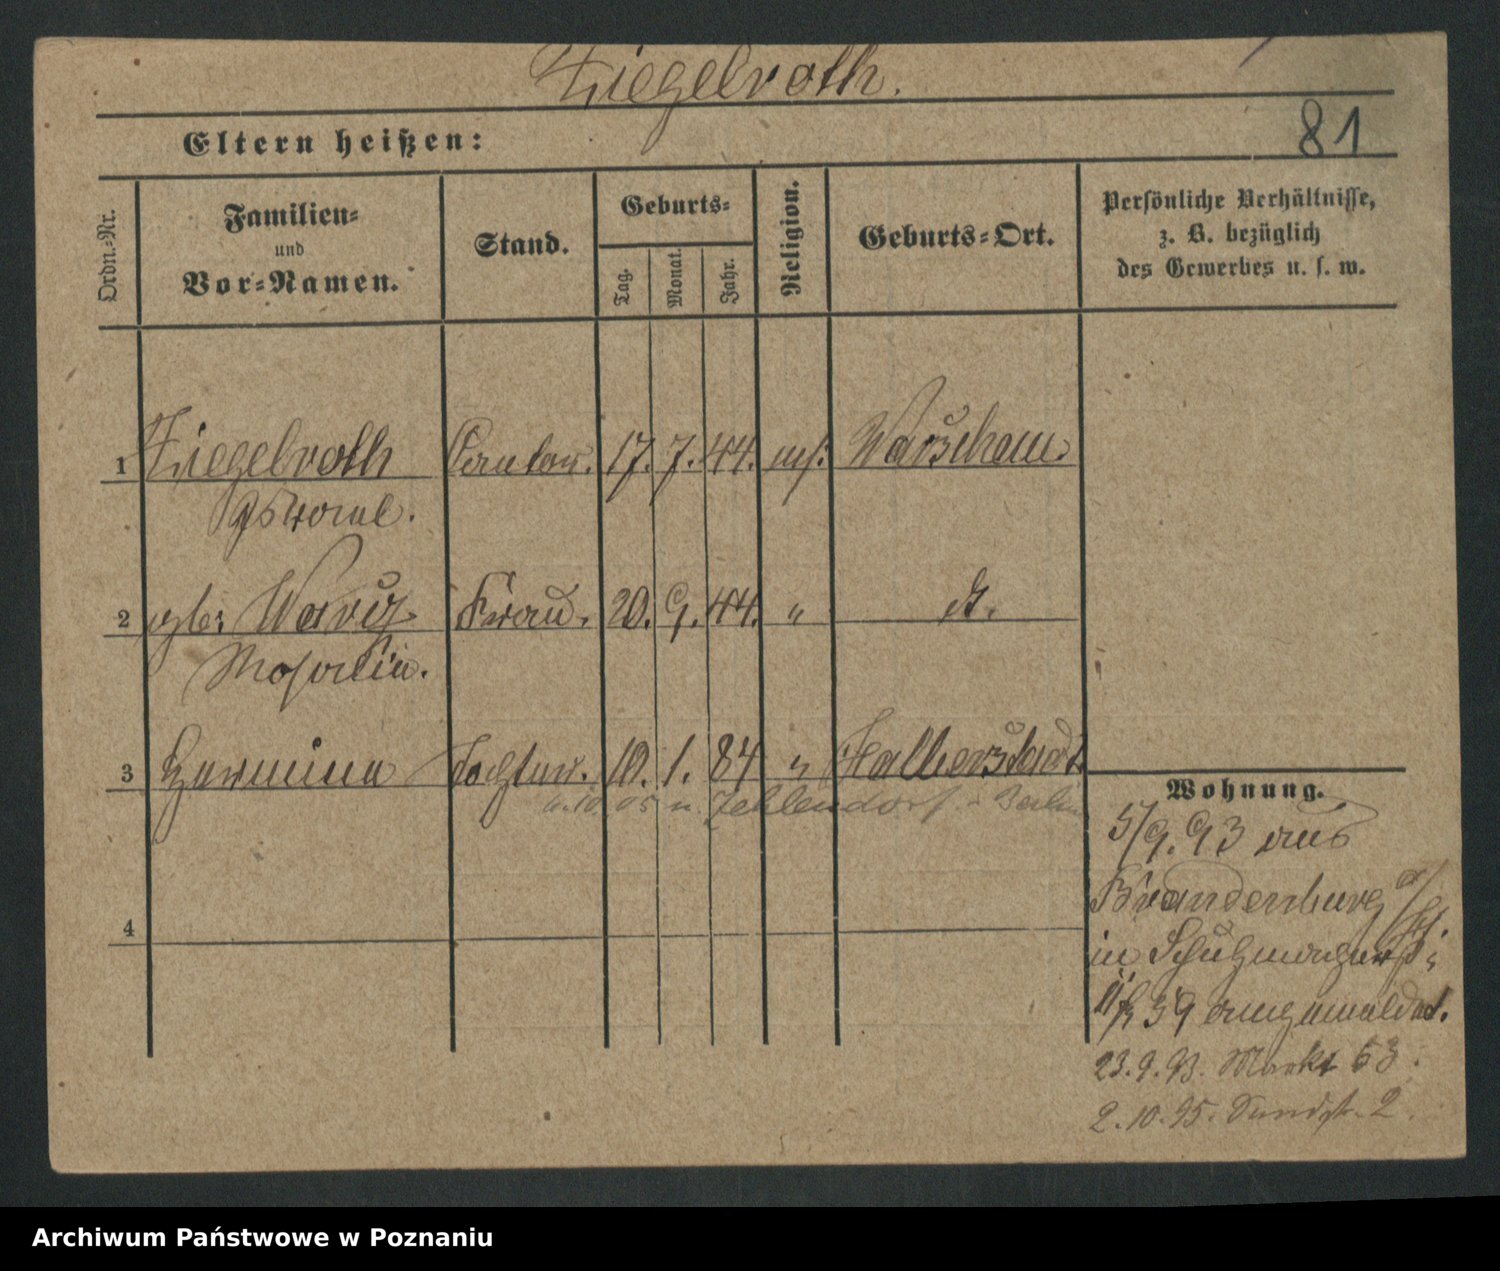 Ziegelroth.
81
Eltern heißen:
Ordn.-Nr.
Familien-
und
Vor-Namen.
Stand.
Geburts-
Tag.
Monat.
Jahr.
Religion.
Geburts-Ort.
Persönliche Verhältnisse,
z. B. bezüglich
des Gewerbes u. s. w.
1 Ziegelroth Cantor. 17. 7. 44. ms. Warschau
2 gb: Frau. 20. 9. 44. " dt.
3 Hermine Tochter. 10. 1. 84 " Halberstadt
10. 05 n. Zehlendorf Berlin
4
Wohnung.
5/9. 93 aus
Brandenburg a/H.
in
39 angemeldet.
23. 9. 93. Markt 53.
2. 10. 95. 2.
Archiwum Państwowe w Poznaniu